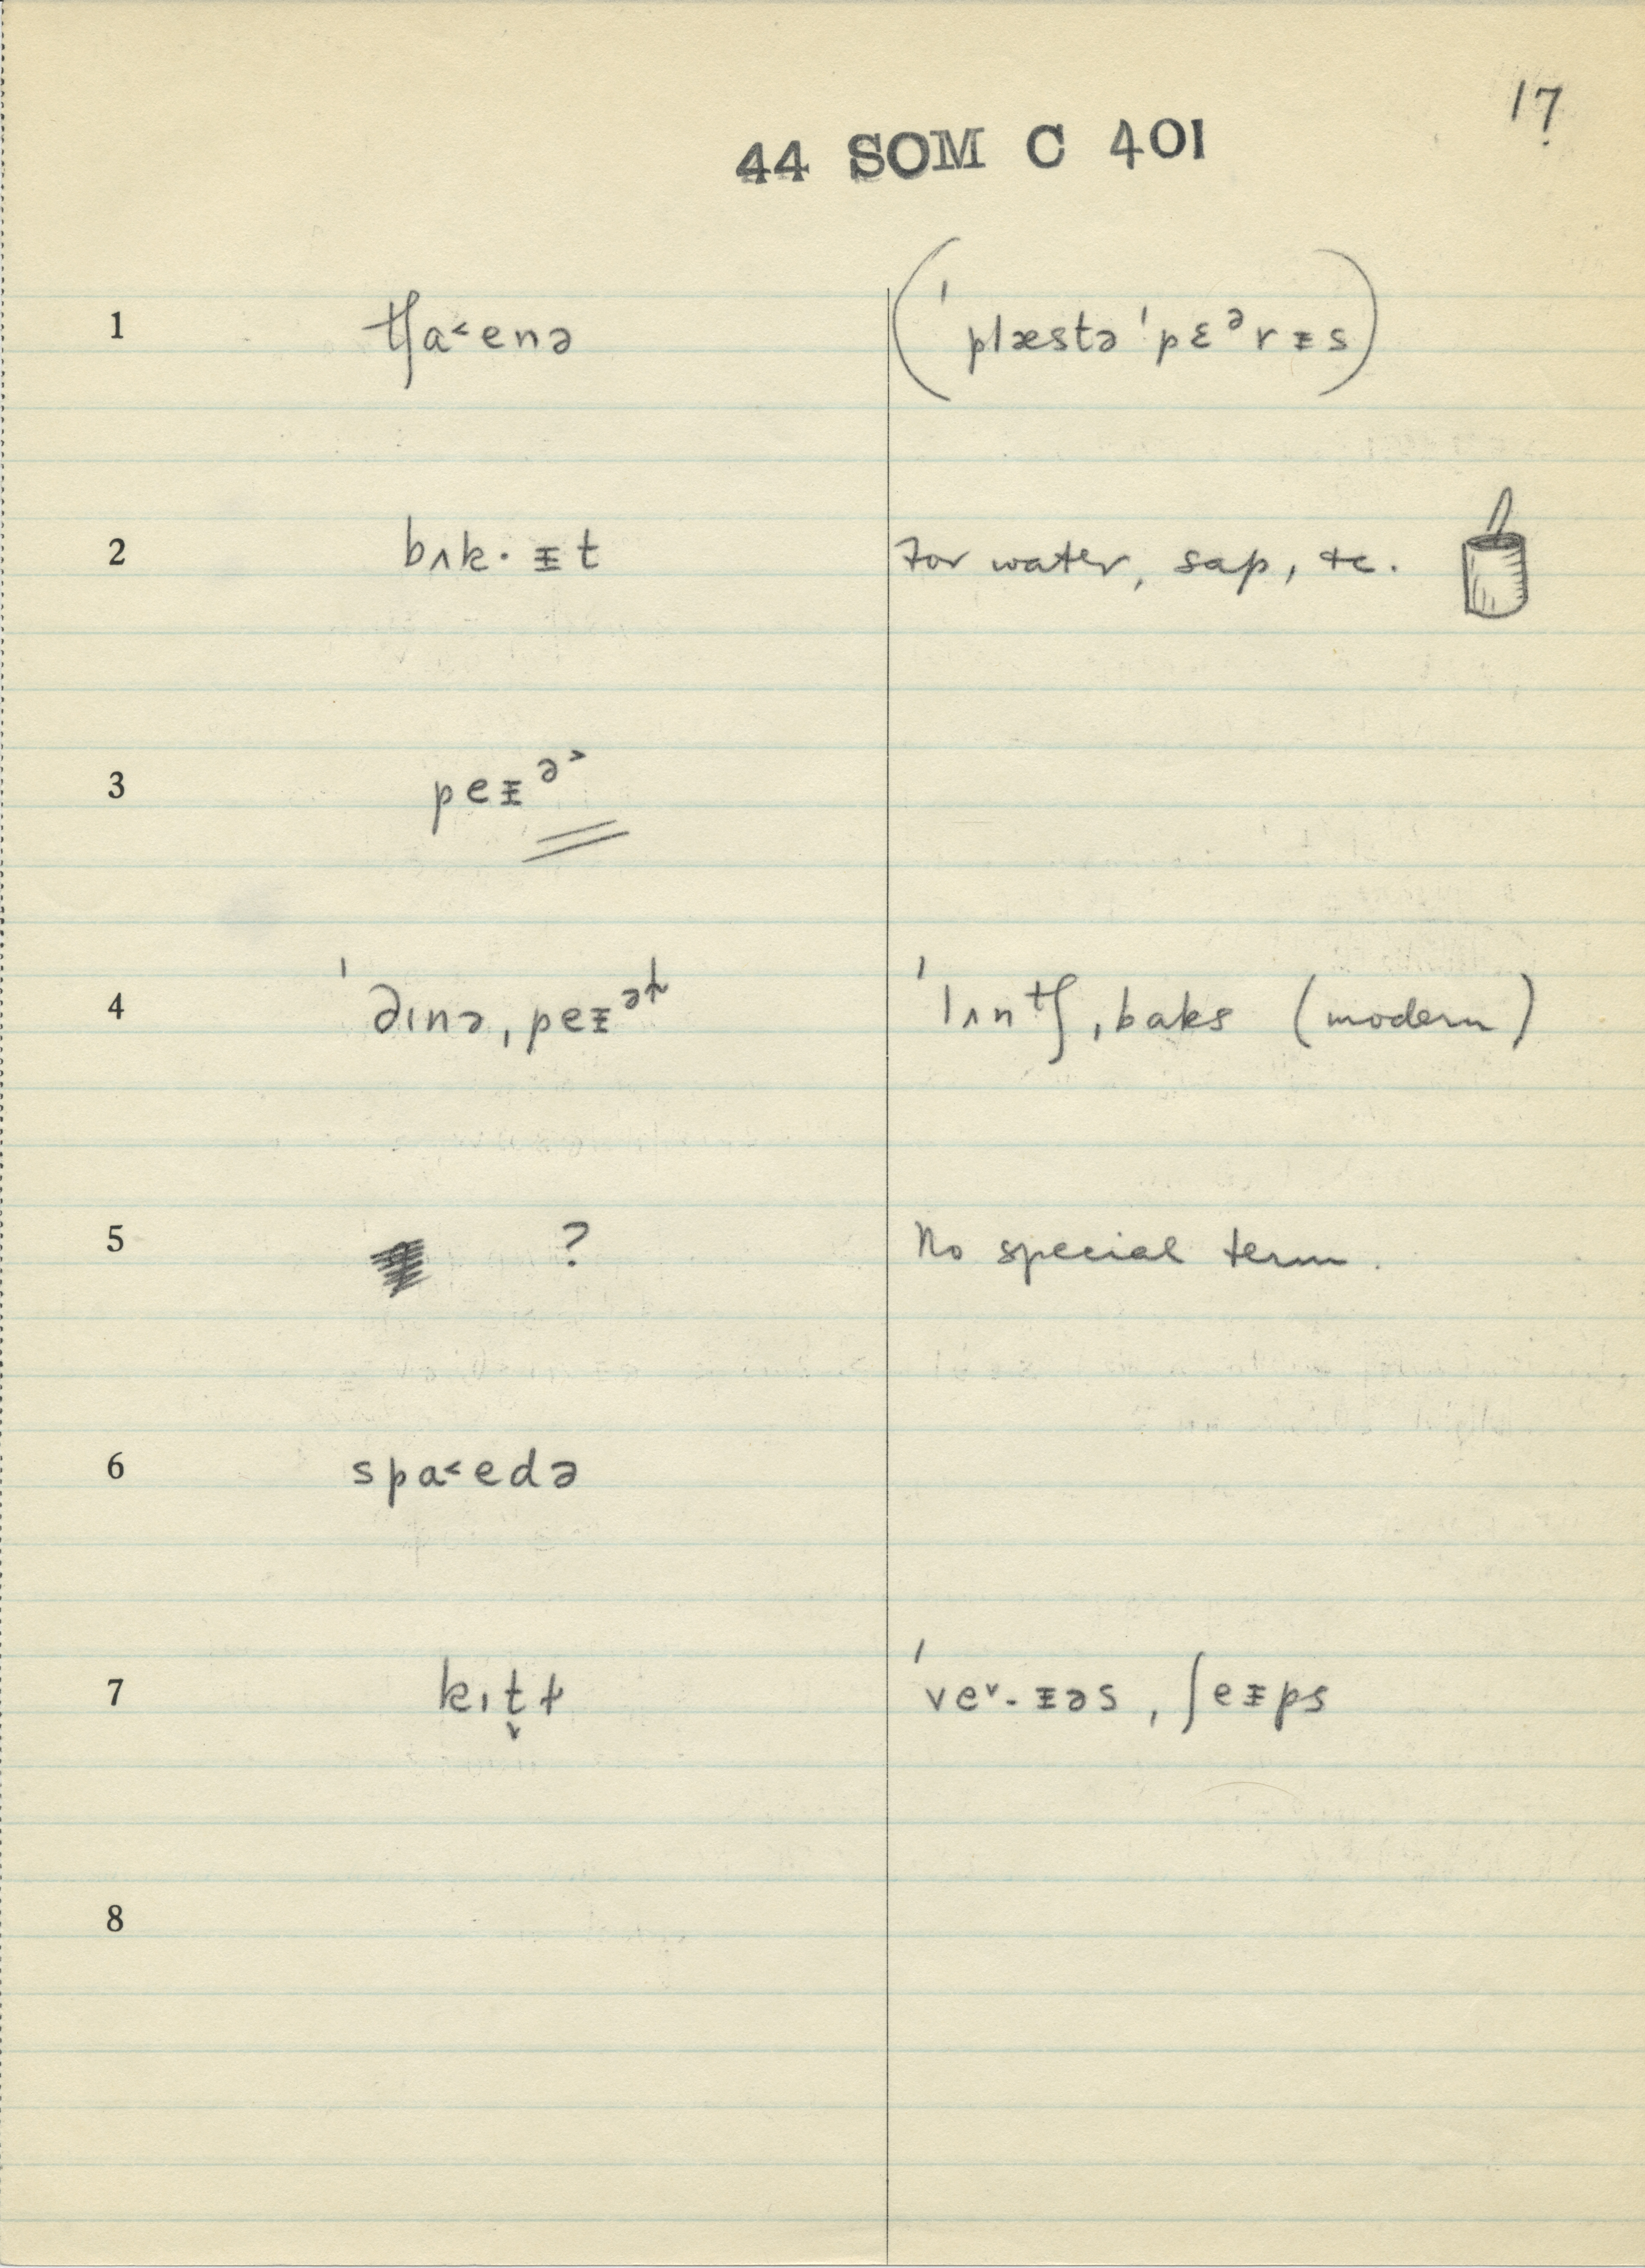 17
44 SOM C 401
1 tʃa˂enə (ˈplæstəˈpɛᵊrᵻs)
2 bʌk·ᵻt For water, sap, etc.
3 peᵻᵊ˃
4 ˈdɪnə, peᵻᵊɫ ˈlʌntʃ, baks (modern)
5 ? No special term.
6 spa˂edə
7 kɪt̬ɫ ˈve˅·ᵻəs, ʃeᵻps
8